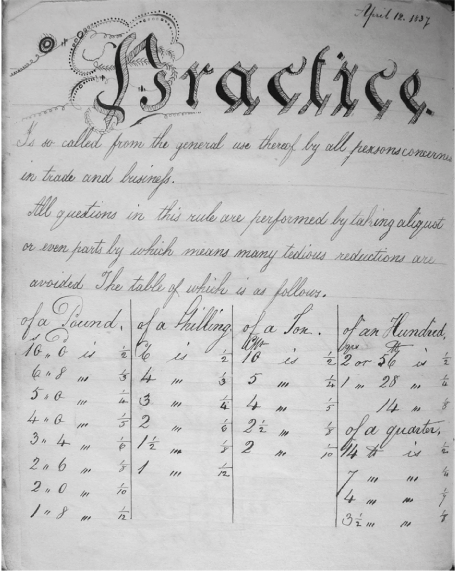 April 12. 1837
Practice.
Is so called from the general use thereof by all persons concerne
in trade and business.
All questions in this rule are performed by taking aliqust
or even parts by which means many tedious reductions are
avoided The table of which is as follows.
of a Pound. of a Shilling of a Ton. of an Hundred,
s D Cwt qrs lb
10 " 0 is 1/2 6 is 1/2 10 is 1/2 2 or 56 is 1/2
6 " 8 " 1/3 4 " 1/3 5 " 1/4 1 " 28 " 1/4
5 " 0 " 1/4 3 " 1/4 4 " 1/5 14 " 1/8
4 " 0 " 1/5 2 " 1/6 2 1/2 " 1/8 of a quarter,
3 " 4 " 1/6 1 1/2 " 1/8 2 " 1/10 14 lb is 1/2
2 " 6 " 1/8 1 " 1/12 7 " " 1/4
2 " 0 " 1/10 4 " " 1/7
1 " 8 " 1/12 3 1/2 " " 1/8